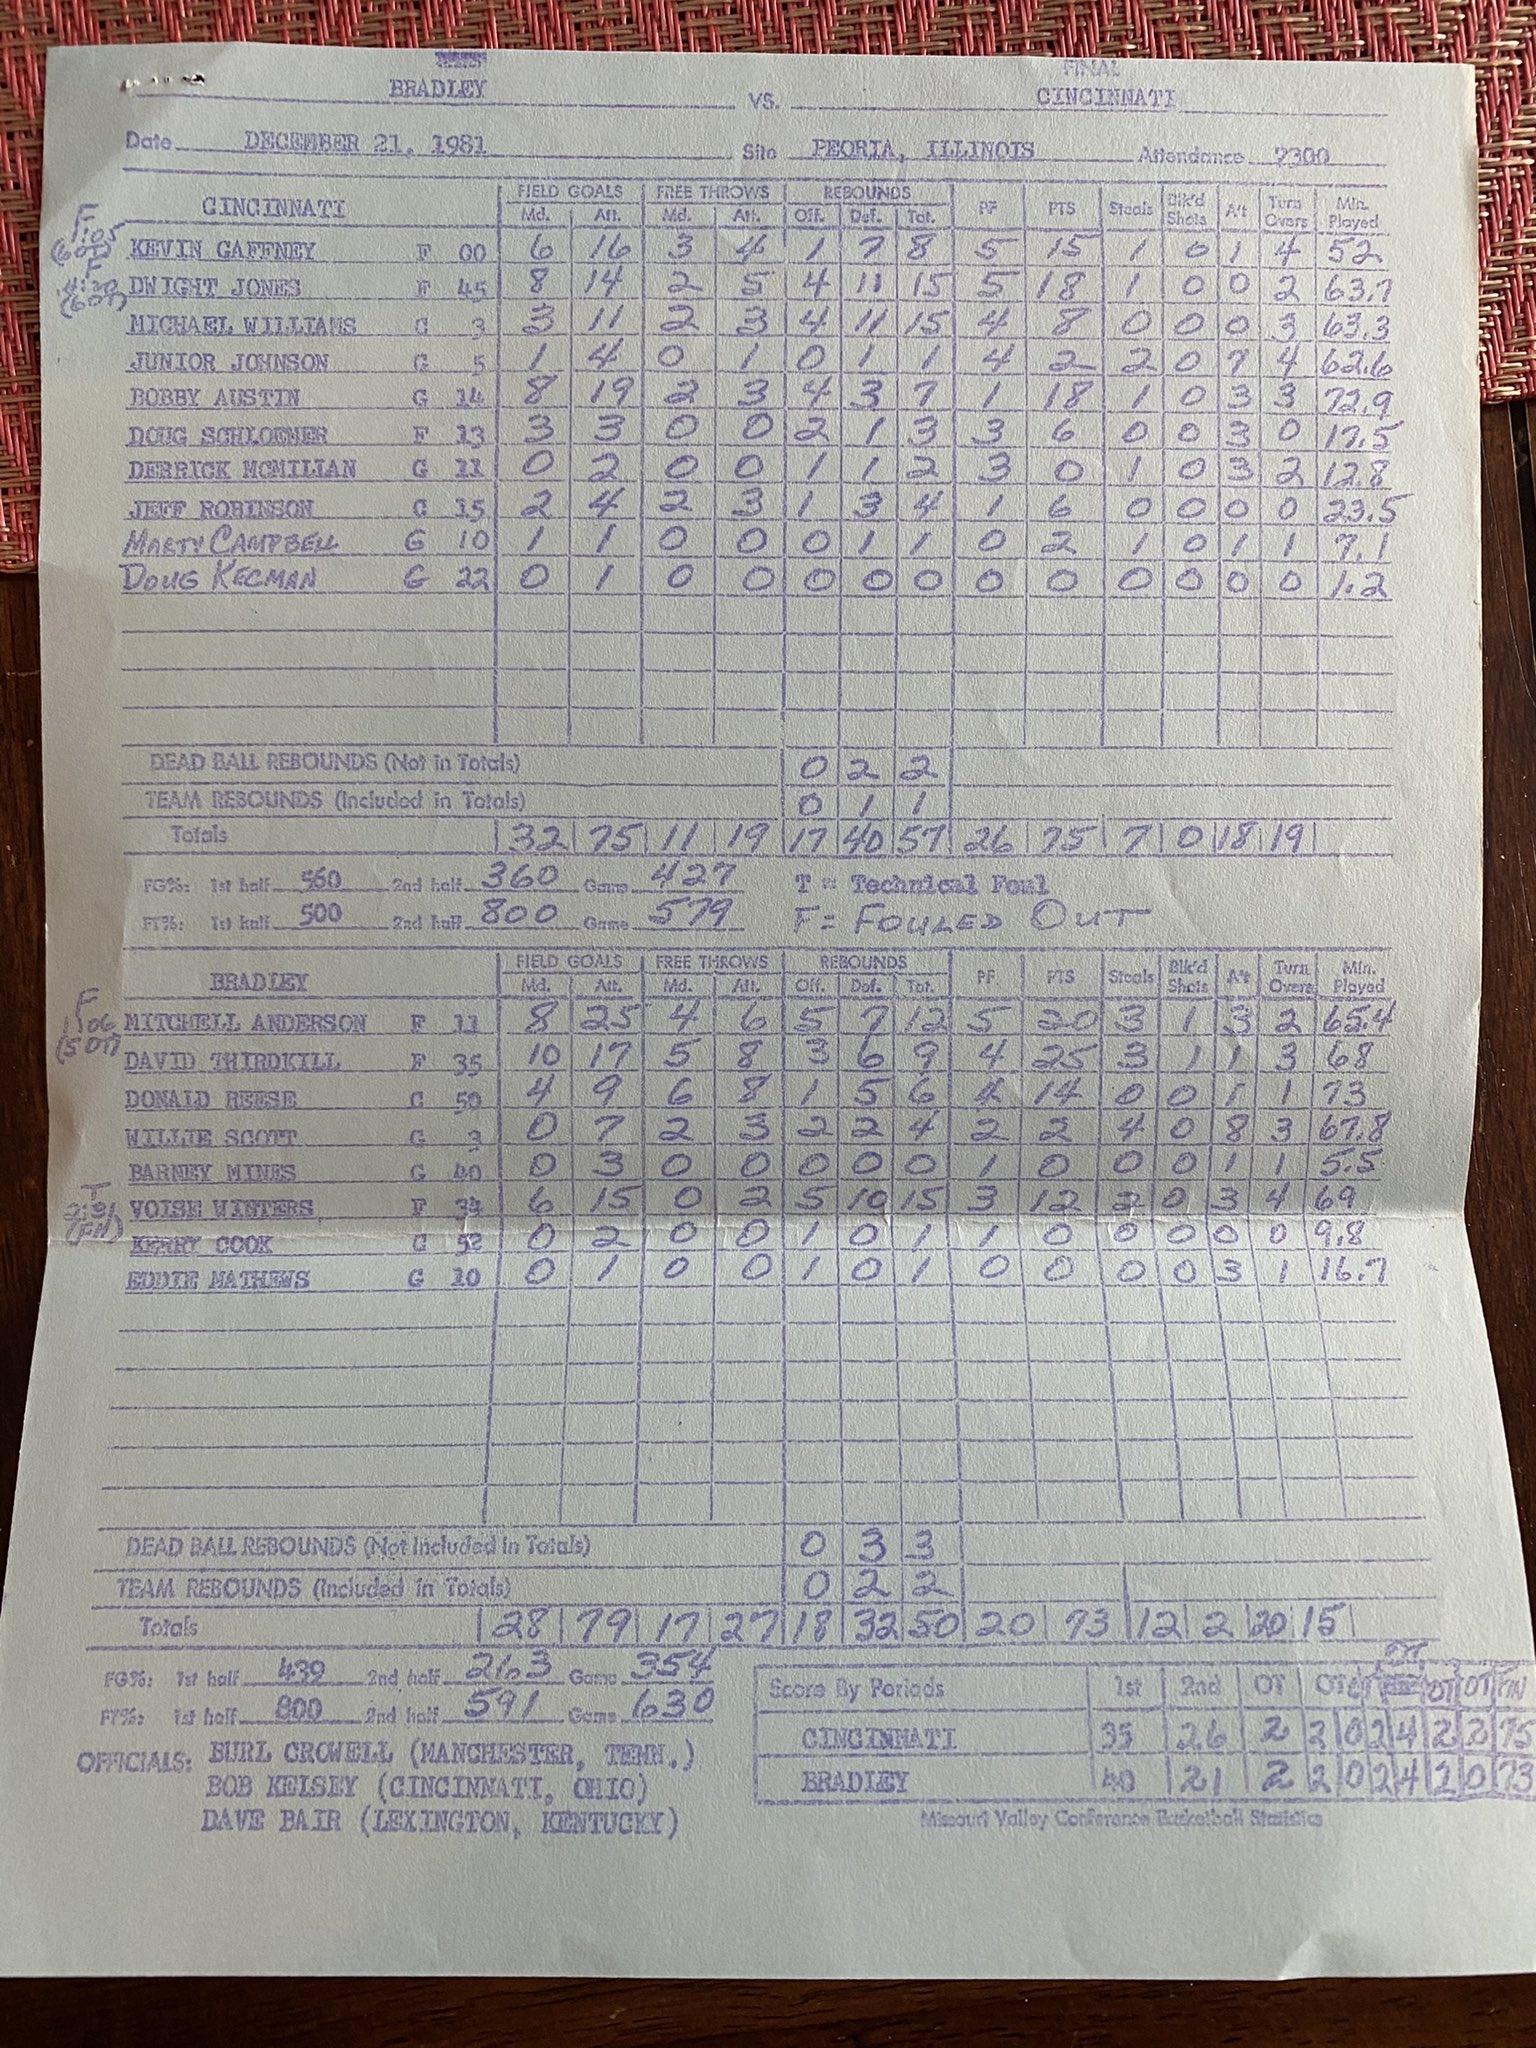 FINAL
BRADLEY VS. CINCINNATI
Date DECEMBER 21, 1981 Site PEORIA, ILLINOIS Attendance 7300
FIELD GOALS FREE THROWS REBOUNDS
CINCINNATI Md. Att. Md. Att. Off. Def. Tot. PF PTS Steals Blk'd Shots A't Turn Overs Min. Played
F :05 (6 OT) KEVIN GAFFNEY F 00 6 16 3 4 1 7 8 5 15 1 0 1 4 52
F (6 OT) DWIGHT JONES F 45 8 14 2 5 4 11 15 5 18 1 0 0 2 63.7
MICHAEL WILLIAMS C 3 3 11 2 3 4 11 15 4 8 0 0 0 3 63.3
JUNIOR JOHNSON G 5 1 4 0 1 0 1 1 4 2 2 0 7 4 62.6
BOBBY AUSTIN G 14 8 19 2 3 4 3 7 1 18 1 0 3 3 72.9
DOUG SCHLOEMER F 13 3 3 0 0 2 1 3 3 6 0 0 3 0 17.5
DERRICK MCMILIAN G 11 0 2 0 0 1 1 2 3 0 1 0 3 2 12.8
JEFF ROBINSON C 15 2 4 2 3 1 3 4 1 6 0 0 0 0 23.5
MARTY CAMPBELL G 10 1 1 0 0 0 1 1 0 2 1 0 1 1 7.1
DOUG KECMAN G 22 0 1 0 0 0 0 0 0 0 0 0 0 0 1.2
DEAD BALL REBOUNDS (Not in Totals) 0 2 2
TEAM REBOUNDS (Included in Totals) 0 1 1
Totals 32 75 11 19 17 40 57 26 75 7 0 18 19
FG%: 1st half 560 2nd half 360 Game 427 T = Technical Foul
FT%: 1st half 500 2nd half 800 Game 579 F = FOULED OUT
FIELD GOALS FREE THROWS REBOUNDS
BRADLEY Md. Att. Md. Att. Off. Def. Tot. PF PTS Steals Blk'd Shots A't Turn Overs Min. Played
F 1:06 (5 OT) MITCHELL ANDERSON F 11 8 25 4 6 5 7 12 5 20 3 1 3 2 65.4
DAVID THIRDKILL F 35 10 17 5 8 3 6 9 4 25 3 1 1 3 68
DONALD REESE C 50 4 9 6 8 1 5 6 4 14 0 0 1 1 73
WILLIE SCOTT G 3 0 7 2 3 2 2 4 2 2 4 0 8 3 67.8
BARNEY MINES G 40 0 3 0 0 0 0 0 1 0 0 0 1 1 5.5
T (FH) VOISE WINTERS F 34 6 15 0 2 5 10 15 3 12 2 0 3 4 69
KERRY COOK C 52 0 2 0 0 1 0 1 1 0 0 0 0 0 9.8
EDDIE MATHEWS G 10 0 1 0 0 1 0 1 0 0 0 0 3 1 16.7
DEAD BALL REBOUNDS (Not Included in Totals) 0 3 3
TEAM REBOUNDS (Included in Totals) 0 2 2
Totals 28 79 17 27 18 32 50 20 73 12 2 20 15
FG%: 1st half 439 2nd half 263 Game 354
FT%: 1st half 800 2nd half 591 Game 630
Score By Periods 1st 2nd OT OT OT OT OT OT FIN
CINCINNATI 35 26 2 2 0 2 4 2 2 75
BRADLEY 40 21 2 2 0 2 4 2 0 73
OFFICIALS: BURL CROWELL (MANCHESTER, TENN.)
BOB KELSEY (CINCINNATI, OHIO)
DAVE BAIR (LEXINGTON, KENTUCKY)
Missouri Valley Conference Basketball Statistics